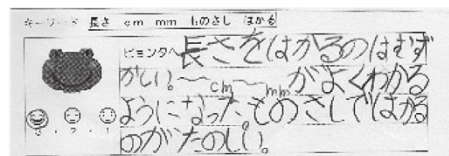 キーワード 長さ cm mm ものさし はかる
ピョンタへ長さをはかるのはむず
がしい。〜〜cm〜mmがよくわかる
ようになった。ものさしではかる
のがたのしい。
3・2・1